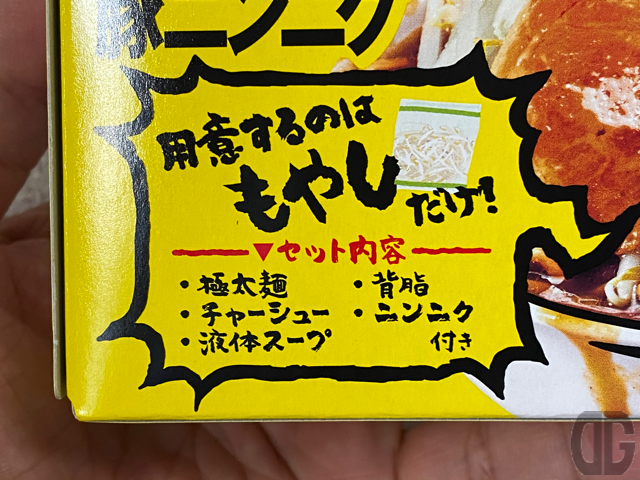 豚ニンニク
用意するのは
もやし
だけ!
▼セット内容
・極太麺
・チャーシュー
・液体スープ
・背脂
・ニンニク
付き
DG